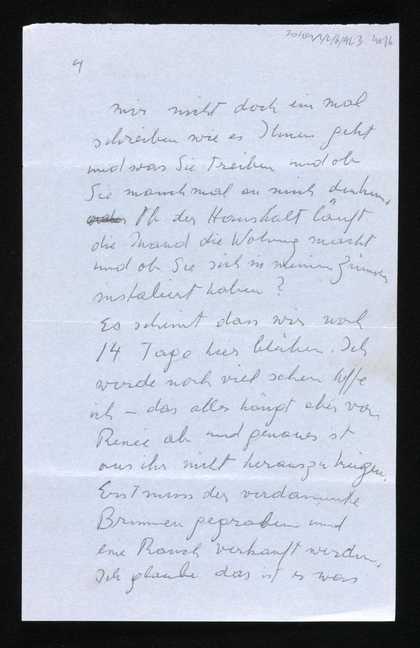 4
mir nicht doch ein mal
schreiben wie es Ihnen geht
und was Sie treiben und ob
Sie manchmal an mich denken,
Ob der Haushalt läuft
die Wohnung macht
und ob Sie sich in meinem Zimmer
instaliert haben?
Es scheint dass wir noch
14 Tage hier bleiben. Ich
werde noch viel sehen hoffe
ich – das alles hängt aber von
Renée ab und genaues ist
aus ihr nicht herauszukriegen.
Erst muss der verdammte
Brunnen gegraben und
eine Ranch verkauft werden.
Ich glaube das ist es was